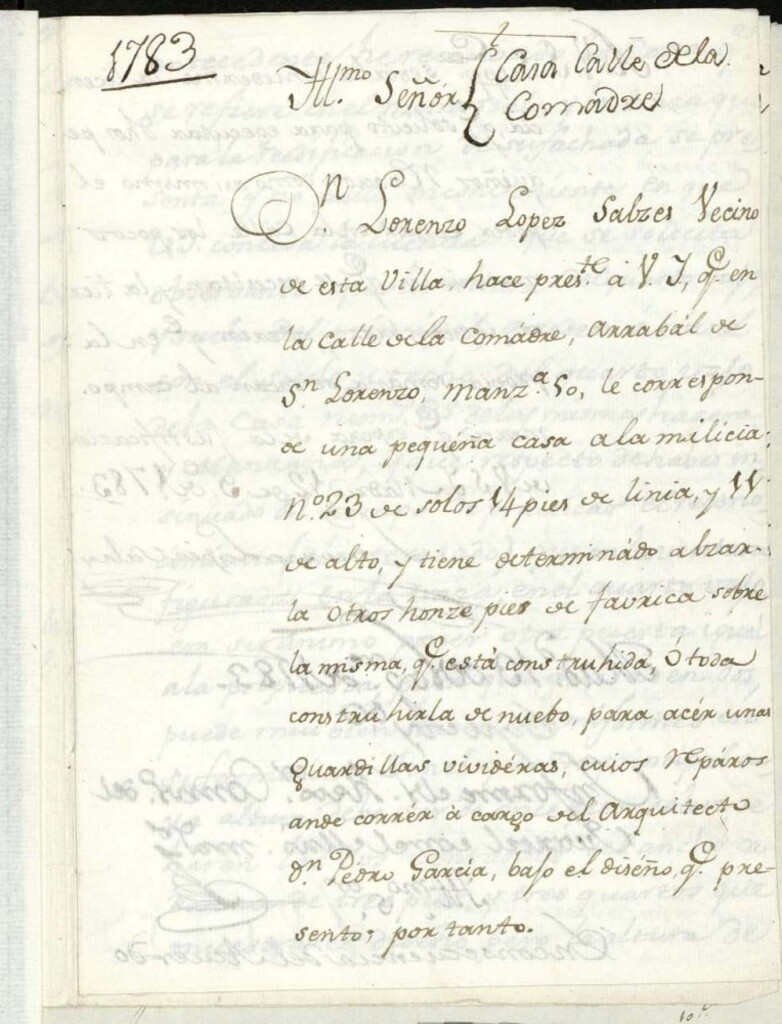 1783
Yllmo Señor
Casa Calle de la
Comadre
Dn Lorenzo Lopez Salzes Vecino
de esta Villa, hace preste. á V. I, q.e en
la Calle de la Comadre, arrabál de
Sn Lorenzo, manz.a 50, le correspon-
de una pequeña casa a la milicia
N.o 23 de solos 14 pies de linia, y 11
de alto, y tiene determinádo alzar-
la otros honze pies de favrica sobre
la misma, q.e está construhida, ó toda
construhirla de nuebo, para acér unas
Guardillas vividéras, cuios repáros
ande corrér à cargo del Arquitecto
dn Pédro Garcia, bajo el diséño, q.e pre-
sento; por tanto.